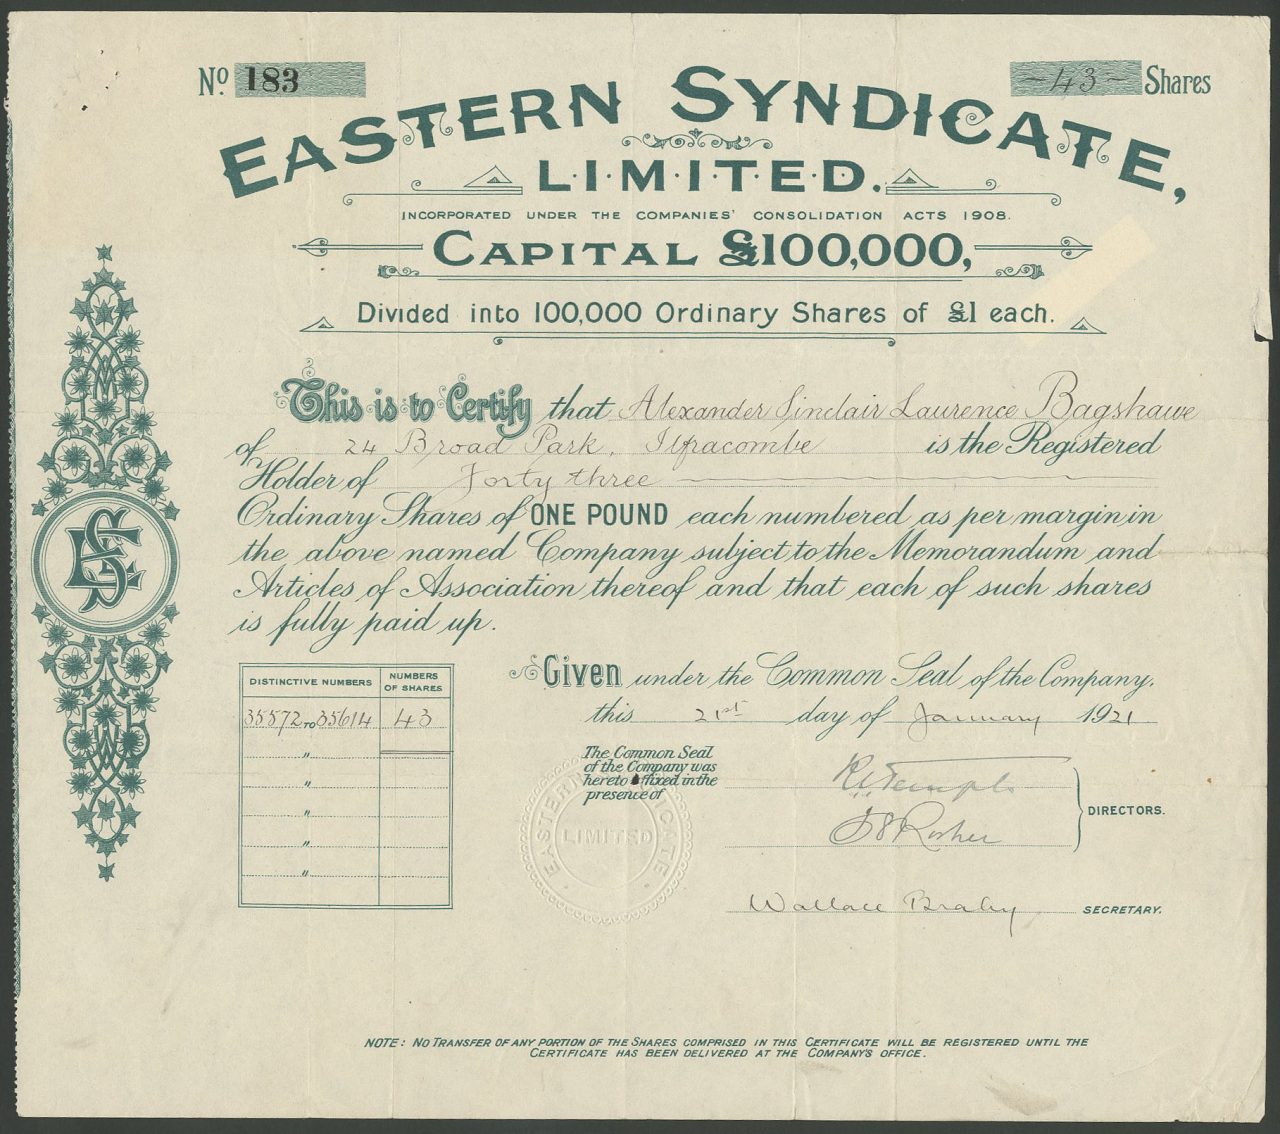 No. 183
~ 43 ~ Shares
EASTERN SYNDICATE,
L·I·M·I·T·E·D.
INCORPORATED UNDER THE COMPANIES' CONSOLIDATION ACTS 1908.
CAPITAL £100,000,
Divided into 100,000 Ordinary Shares of £1 each.
This is to Certify that Alexander Sinclair Laurence Bagshawe
of 24 Broad Park, Ilfracombe is the Registered
Holder of Forty three
Ordinary Shares of ONE POUND each numbered as per margin in
the above named Company subject to the Memorandum and
Articles of Association thereof and that each of such shares
is fully paid up.
ES
DISTINCTIVE NUMBERS NUMBERS OF SHARES
35572 TO 35614 43
"
"
"
"
"
Given under the Common Seal of the Company.
this 21st day of January 1921
The Common Seal
of the Company was
hereto affixed in the
presence of
EASTERN SYNDICATE
LIMITED
DIRECTORS.
Wallace Braby SECRETARY.
NOTE: NO TRANSFER OF ANY PORTION OF THE SHARES COMPRISED IN THIS CERTIFICATE WILL BE REGISTERED UNTIL THE
CERTIFICATE HAS BEEN DELIVERED AT THE COMPANY'S OFFICE.